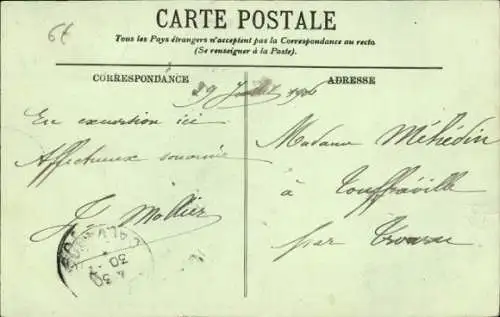 6f
CARTE POSTALE
Tous les Pays étrangers n'acceptent pas la Correspondance au recto
(Se renseigner à la Poste).
CORRESPONDANCE
ADRESSE
29 Juillet 1906
En excursion ici
Affectueux souvenir
Mollier
Madame Méhédin
à Touffréville
par Troarn
CALVADOS
4 30
30 -7